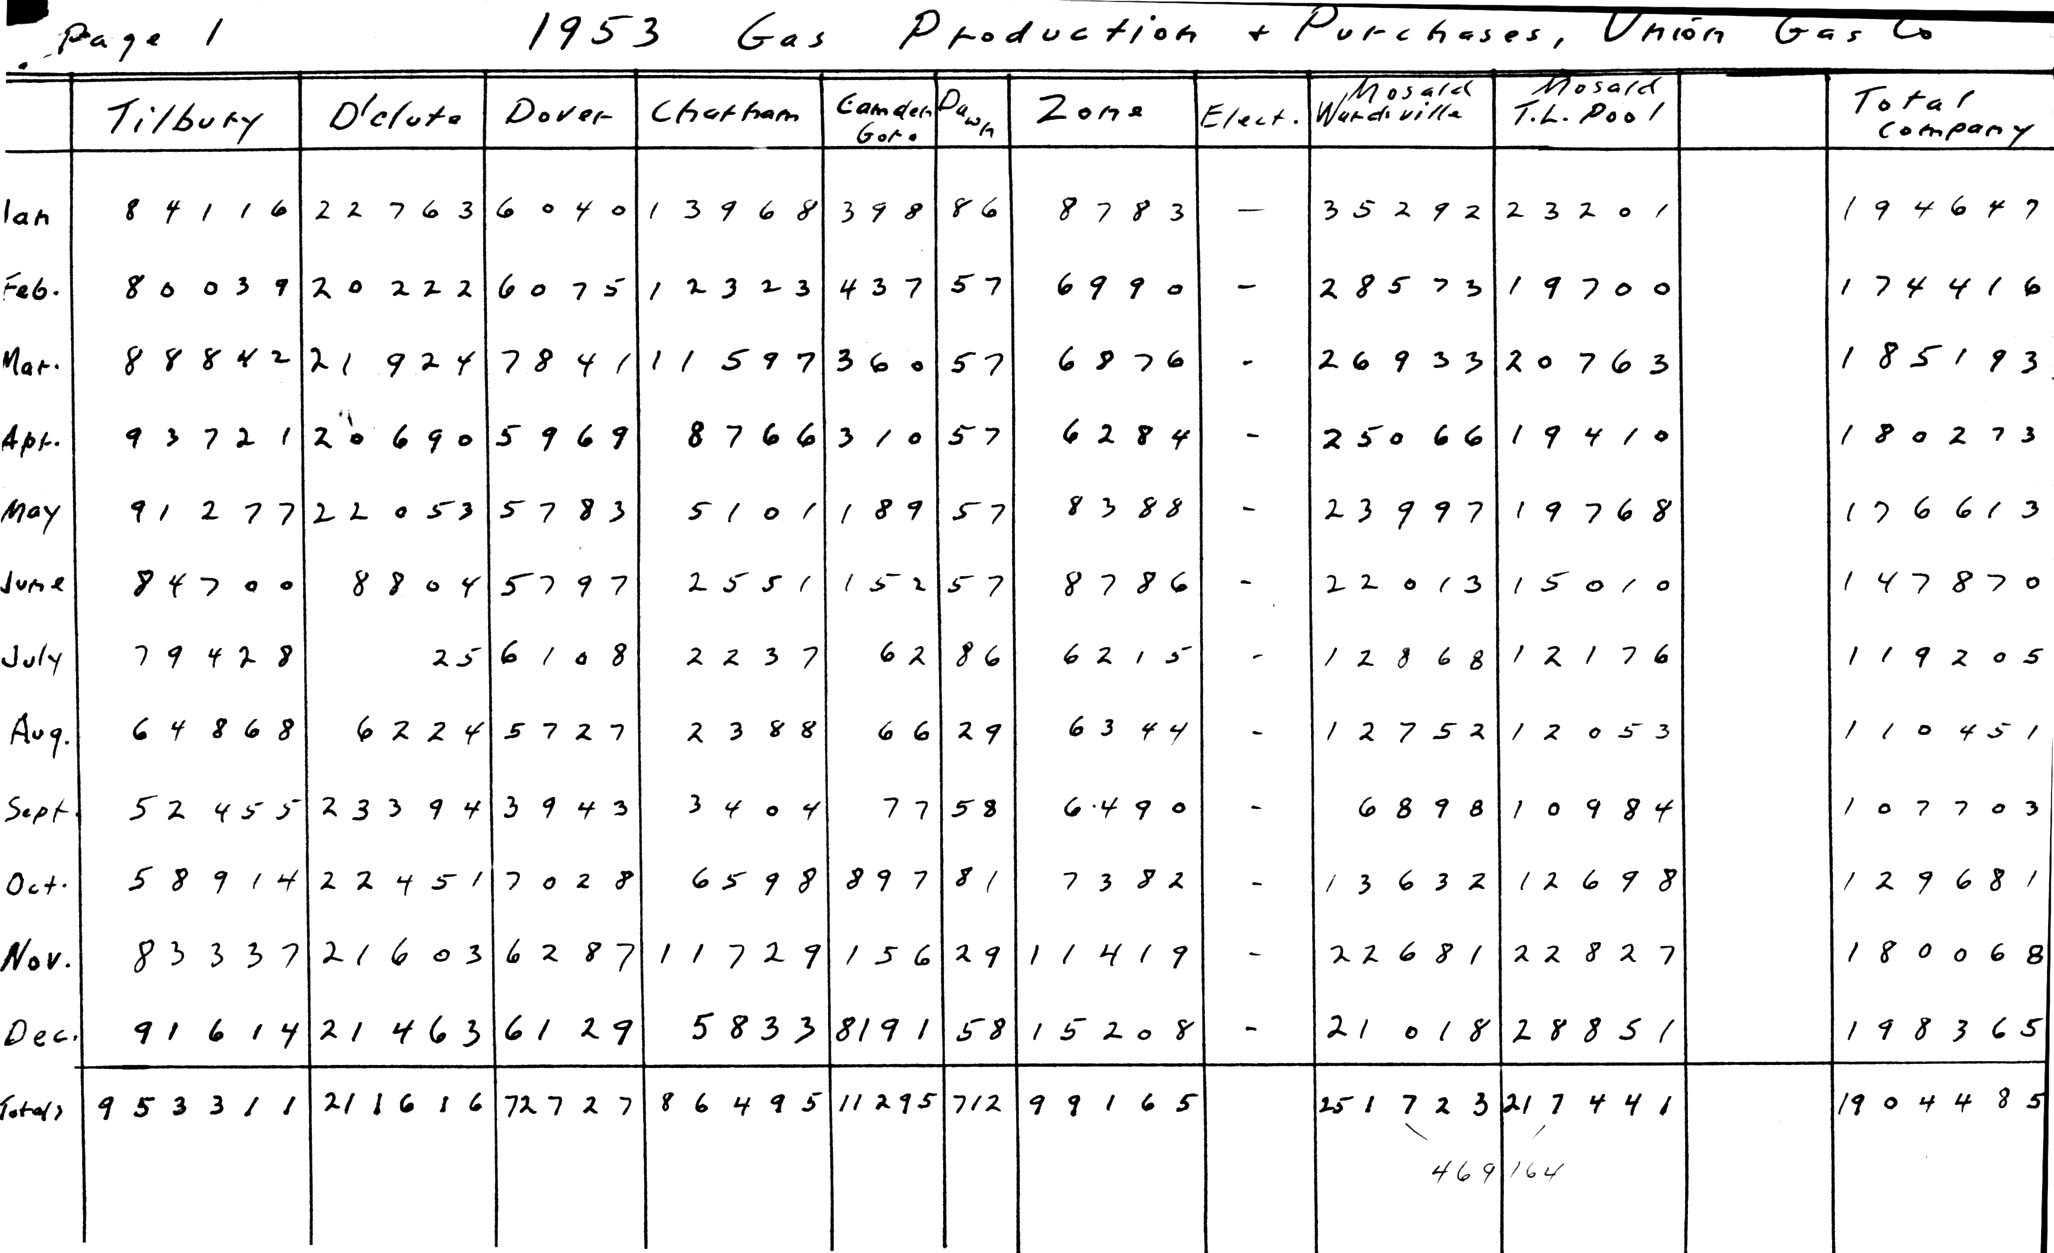 Page 1 1953 Gas Production + Purchases, Union Gas Co
Tilbury D'clute Dover Chatham Camden Gore Dawn Zone Elect. Mosald Wardsville Mosald T.L. Pool Total Company
Jan 84116 22763 6040 13968 398 86 8783 — 35292 23201 194647
Feb. 80039 20222 6075 12323 437 57 6990 - 28573 19700 174416
Mar. 88842 21924 7841 11597 360 57 6876 - 26933 20763 185193
Apr. 93721 20690 5969 8766 310 57 6284 - 25066 19410 180273
May 91277 22053 5783 5101 189 57 8388 - 23997 19768 176613
June 84700 8804 5797 2551 152 57 8786 - 22013 15010 147870
July 79428 25 6108 2237 62 86 6215 - 12868 12176 119205
Aug. 64868 6224 5727 2388 66 29 6344 - 12752 12053 110451
Sept. 52455 23394 3943 3404 77 58 6490 - 6898 10984 107703
Oct. 58914 22451 7028 6598 897 81 7382 - 13632 12698 129681
Nov. 83337 21603 6287 11729 156 29 11419 - 22681 22827 180068
Dec. 91614 21463 6129 5833 8191 58 15208 - 21018 28851 198365
Totals 953311 211616 72727 86495 11295 712 99165 251723 217441 1904485
469164